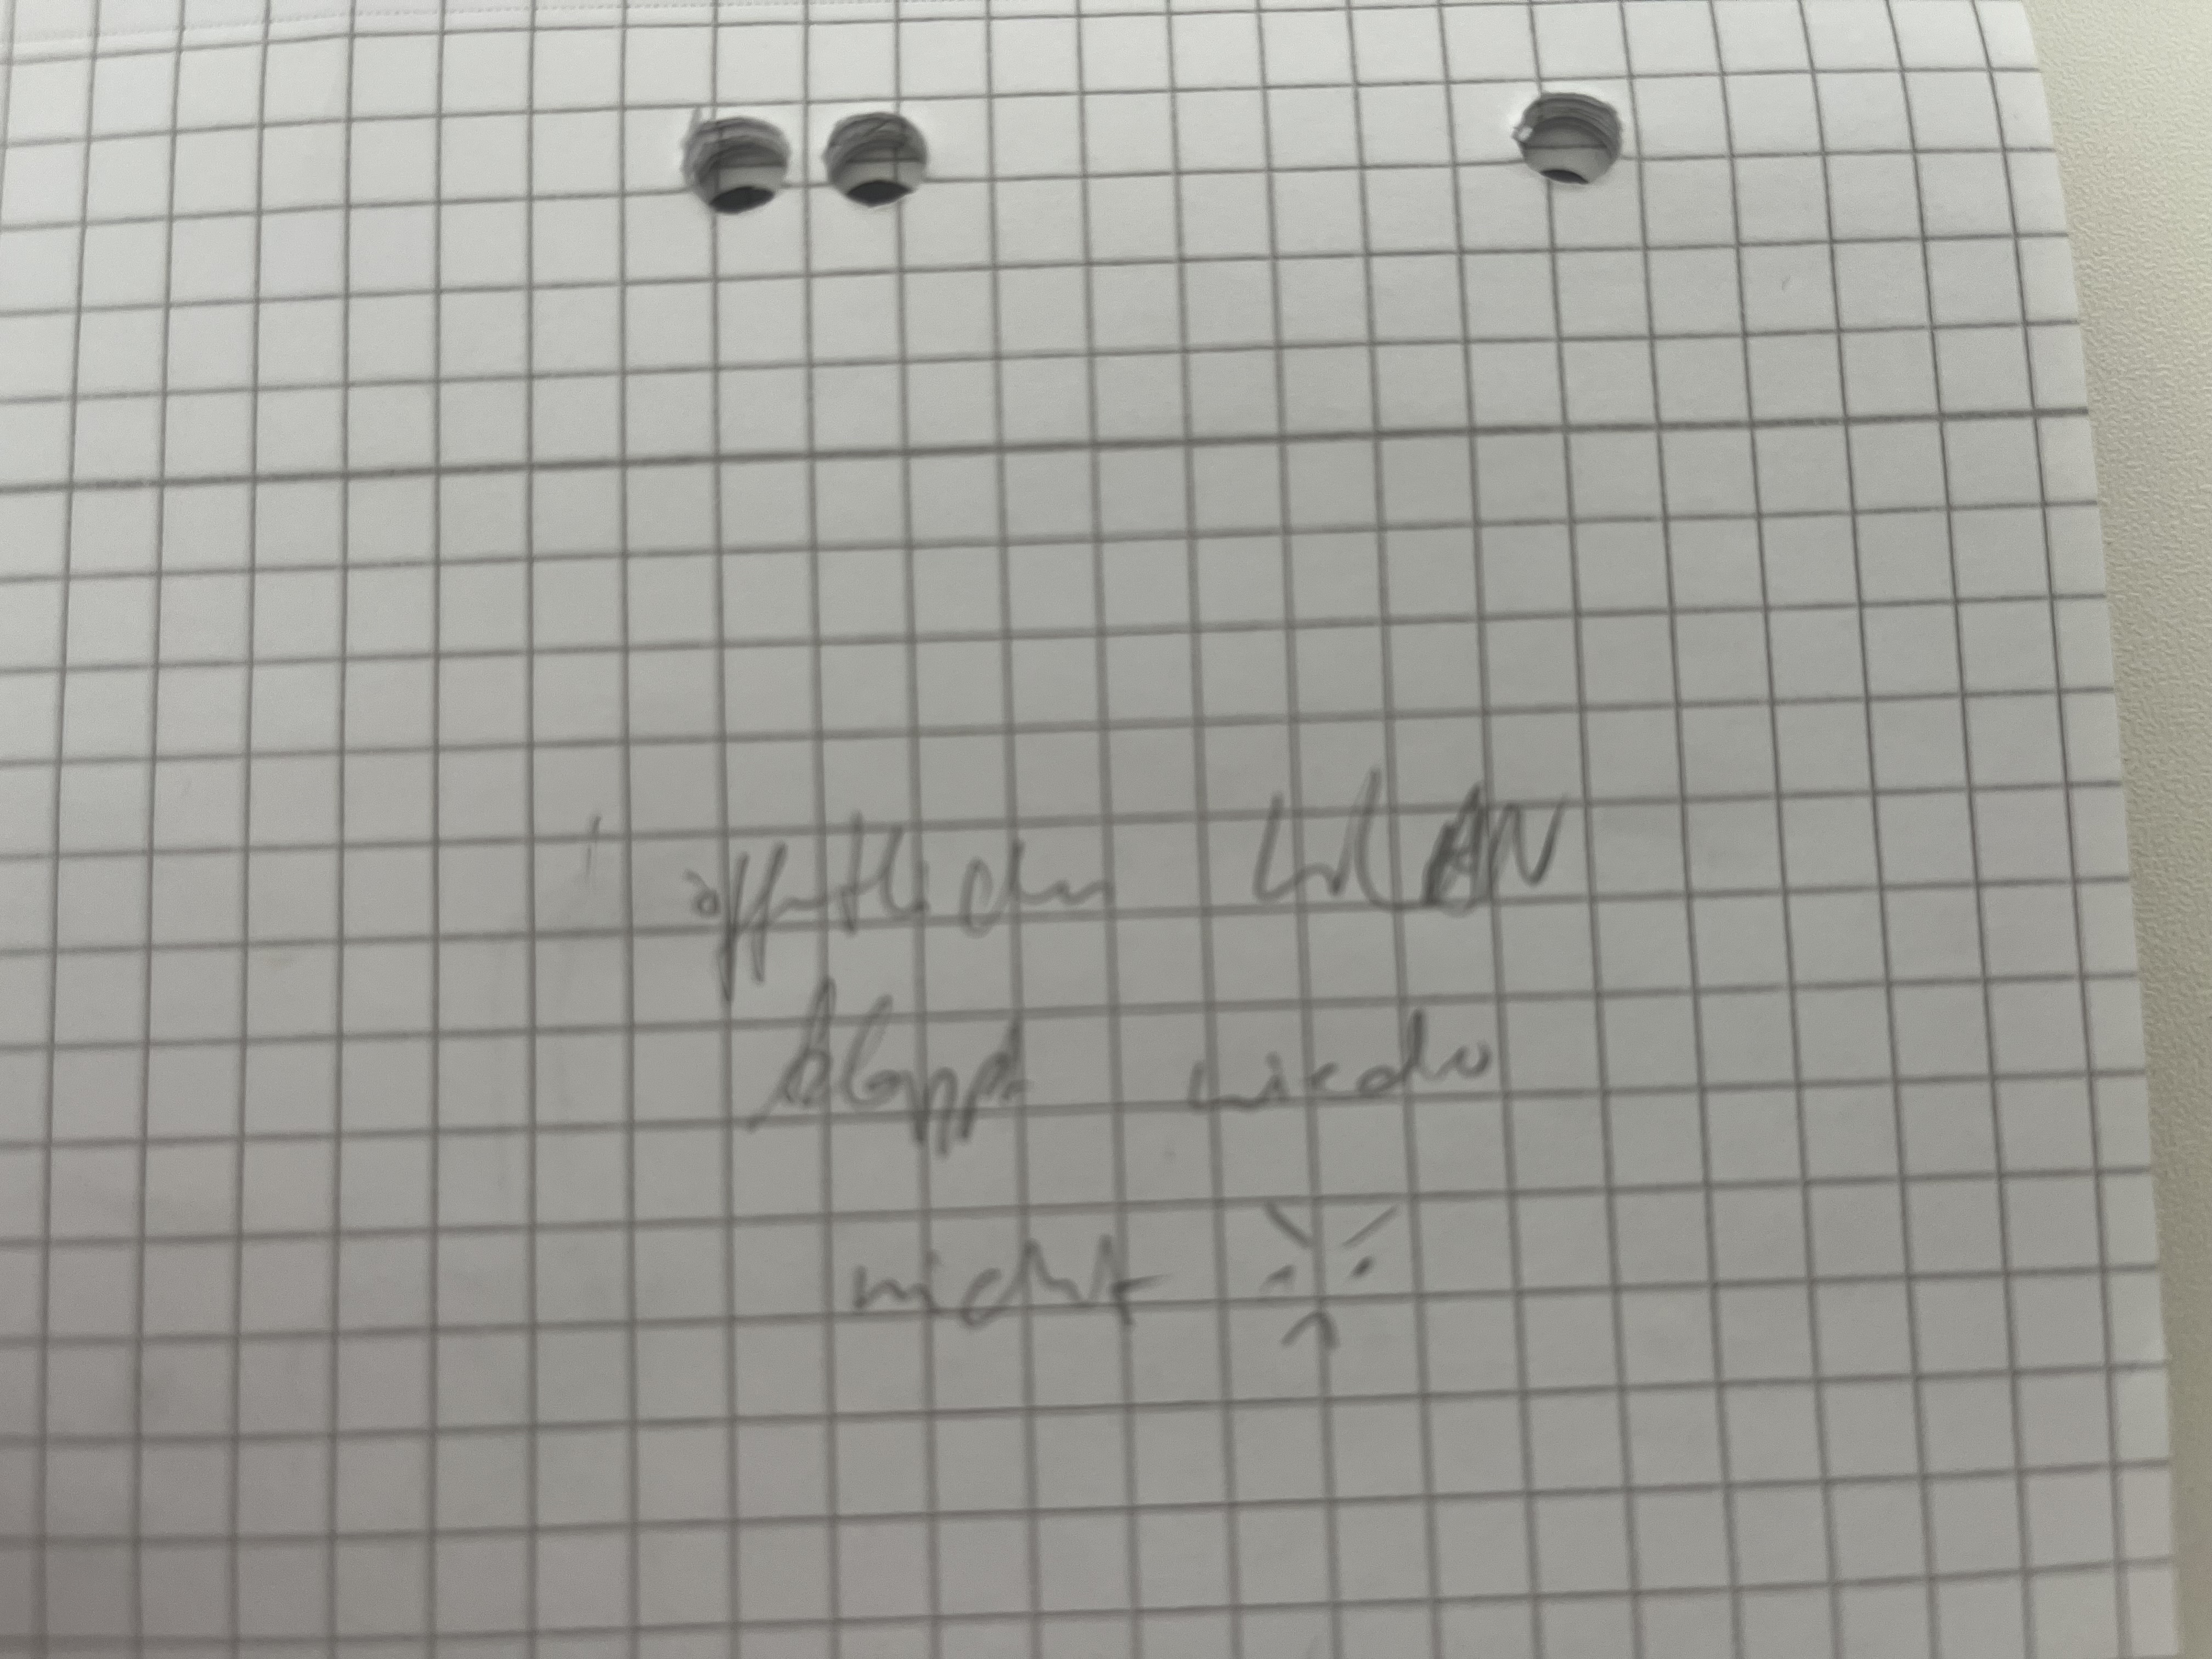 öffentliches WLAN
klappt wieder
nicht